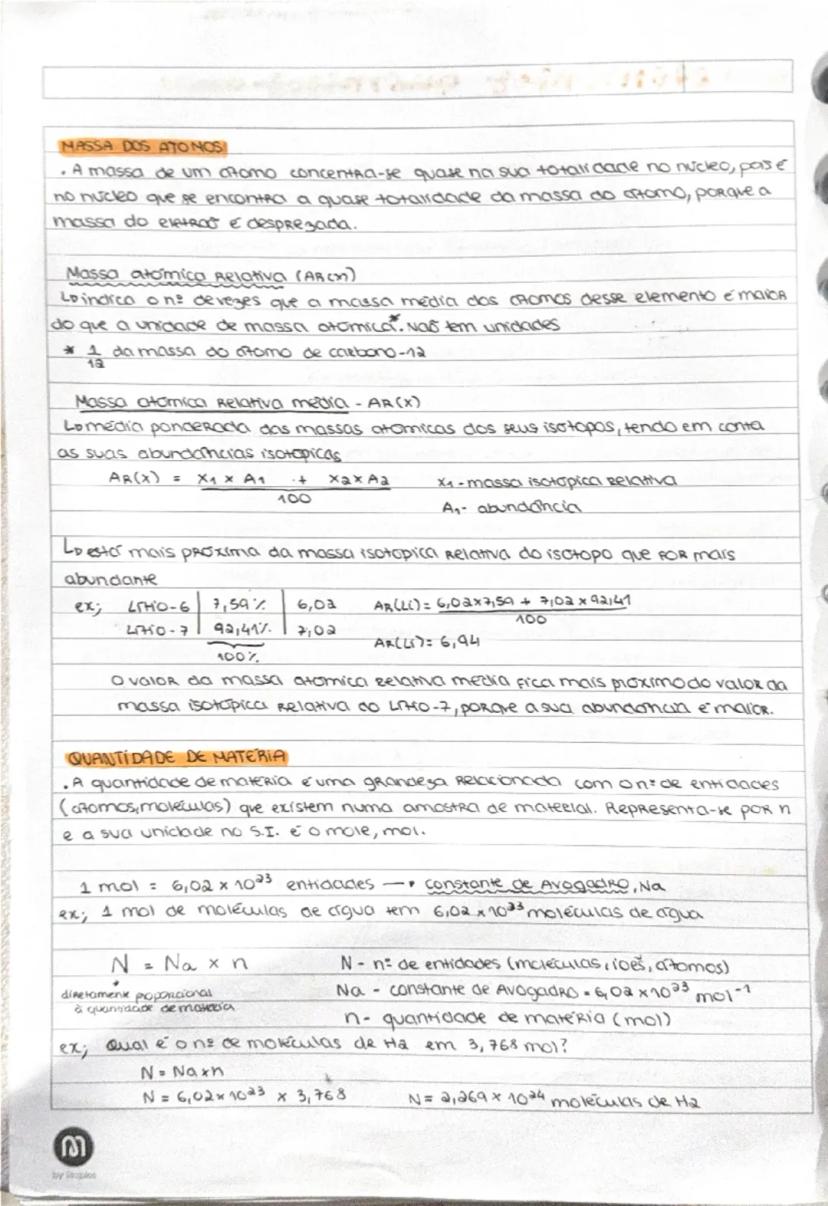 MASSA DOS ÁTOMOS
. A massa de um átomo concentra-se quase na sua totalidade no núcleo, pois é
no núcleo que se encontra a quase totalidade da massa do átomo, porque a
massa do eletrão é desprezada.
Massa atómica Relativa (AR(x))
↳ indica o nº de vezes que a massa média dos átomos desse elemento é maior
do que a unidade de massa atómica*. Não tem unidades
* 1/12 da massa do átomo de carbono-12
Massa atómica Relativa média - AR(x)
↳ média ponderada das massas atómicas dos seus isótopos, tendo em conta
as suas abundâncias isotópicas
AR(x) = X1 × A1 + X2 × A2 / 100 X1 - massa isotópica relativa
A1 - abundância
↳ está mais próxima da massa isotópica Relativa do isótopo que for mais
abundante
ex; Lítio-6 | 7,59% | 6,02 AR(Li) = 6,02×7,59 + 7,02×92,41 / 100
Lítio-7 | 92,41% | 7,02 AR(Li) = 6,94
100%
O valor da massa atómica relativa média fica mais próximo do valor da
massa isotópica relativa do Lítio-7, porque a sua abundância é maior.
QUANTIDADE DE MATÉRIA
. A quantidade de matéria é uma grandeza relacionada com o nº de entidades
(átomos, moléculas) que existem numa amostra de material. Representa-se por n
e a sua unidade no S.I. é o mole, mol.
1 mol = 6,02 × 10²³ entidades → constante de Avogadro, Na
ex; 1 mol de moléculas de água tem 6,02 × 10²³ moléculas de água
N = Na × n N - nº de entidades (moléculas, iões, átomos)
diretamente proporcional Na - constante de Avogadro = 6,02 × 10²³ mol⁻¹
à quantidade de matéria n - quantidade de matéria (mol)
ex; Qual é o nº de moléculas de H2 em 3,768 mol?
N = Na×n
N = 6,02 × 10²³ × 3,768 N = 2,269 × 10²⁴ moléculas de H2
by Staples